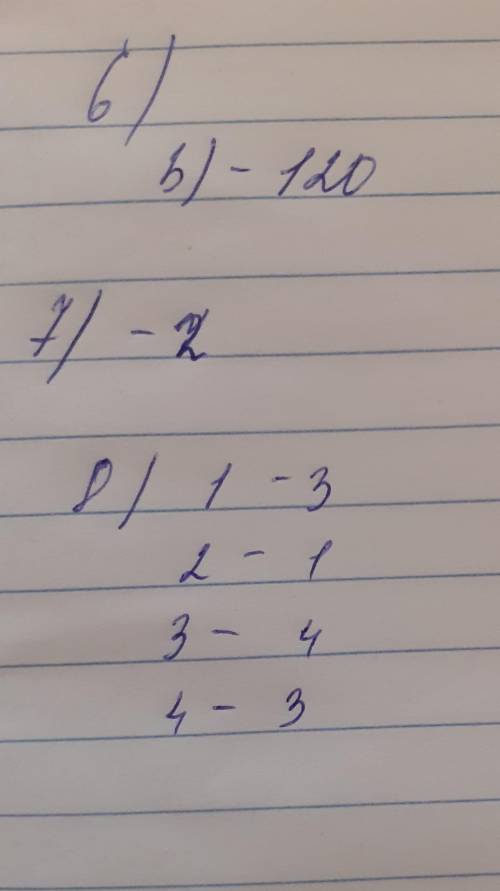 6)
b) - 120
7) - 2
8) 1 - 3
2 - 1
3 - 4
4 - 3